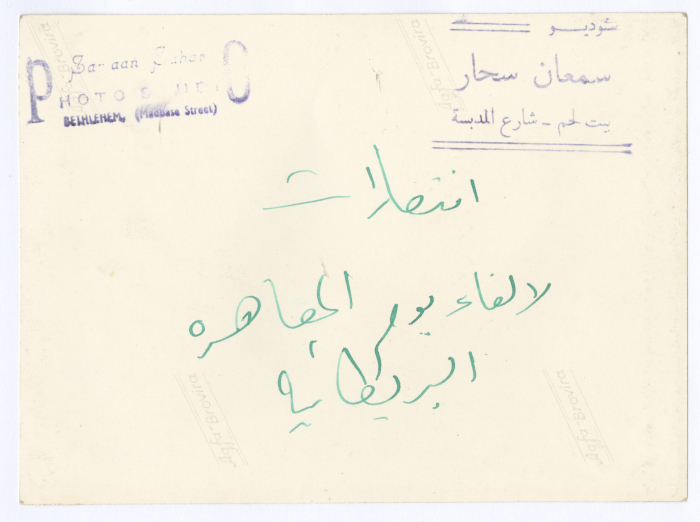 Samaan Sahar
PHOTO
BETHLEHEM, (Madbase Street)
ستوديـو
سمعان سحار
بيت لحم - شارع المدبسة
انتصارات
لالغاء يوم المعاهده
البريطانيه
Agfa-Brovira
Agfa-Brovira
Agfa-Brovira
Agfa-Brovira